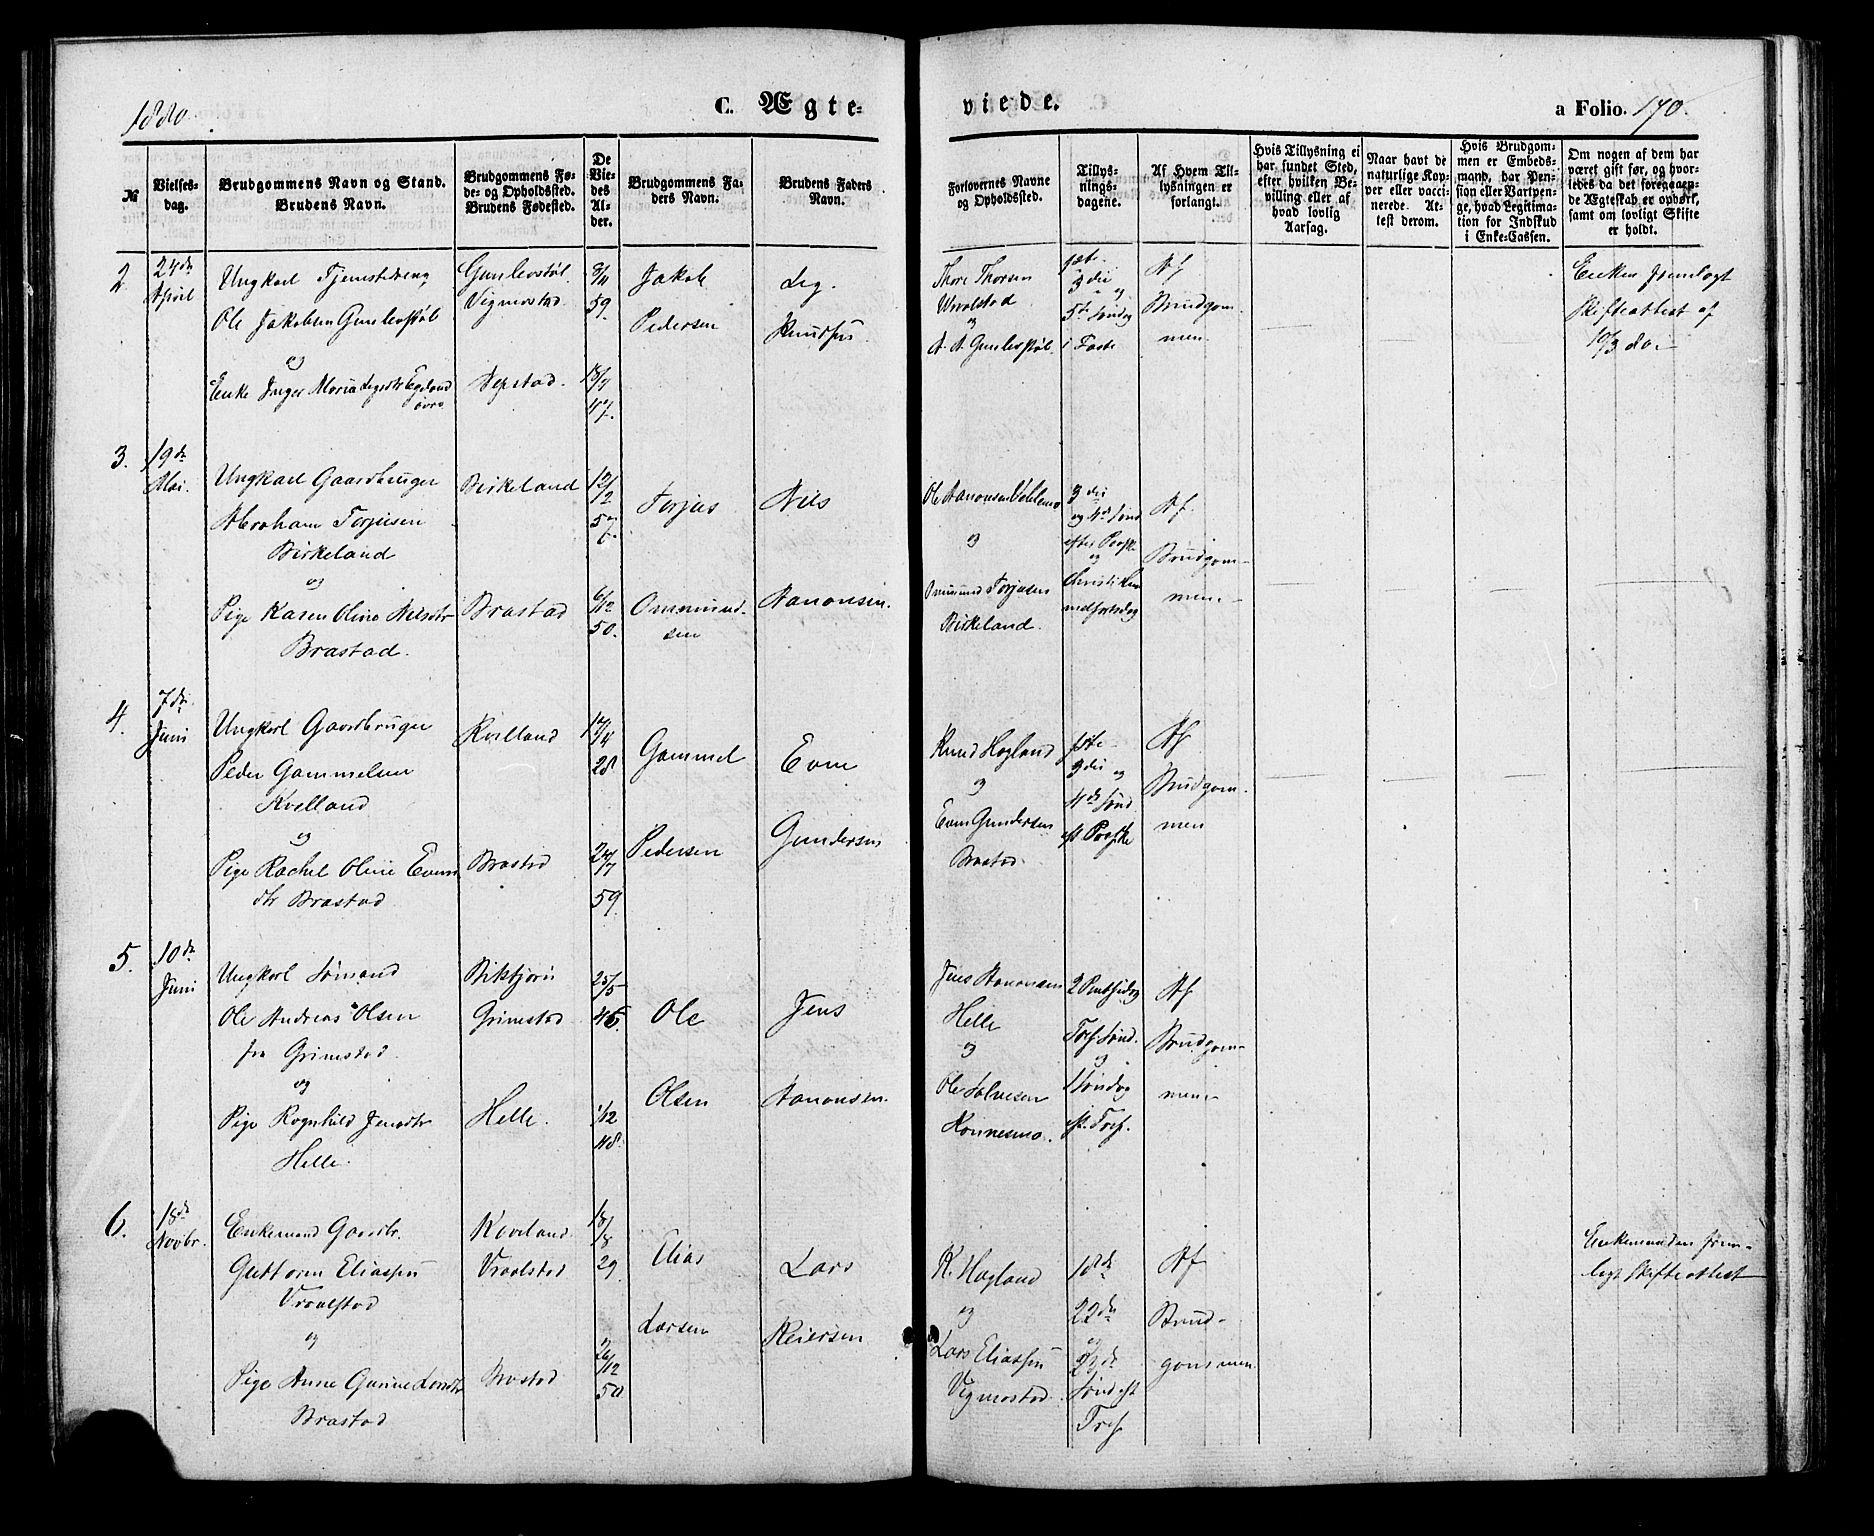 1880.
C. Ægte-
viede.
a Folio. 170.
№
Vielses-
dag.
Brudgommens Navn og Stand.
Brudens Navn.
Brudgommens Fø-
de- og Opholdssted.
Brudens Fødested.
De
Vie-
des
Al-
der.
Brudgommens Fa-
ders Navn.
Brudens Faders
Navn.
Forlovernes Navne
og Opholdssted.
Tillys-
nings-
dagene.
Af Hvem Til-
lysningen er
forlangt.
Hvis Tillysning ei
har fundet Sted,
efter hvilken Be-
villing eller af
hvad lovlig
Aarsag.
Naar havt de
naturlige Kop-
per eller vacci-
nerede. At-
test derom.
Hvis Brudgom-
men er Embeds-
mand, dar Pen-
sion eller Vartpen-
ge, hvad Legitima-
tion for Indskud
i Enke-Cassen.
Om nogen af dem har
været gift før, og hvor-
ledes da det foregaaen-
de Ægteskab er ophørt,
samt om lovligt Skifte
er holdt.
2
24de
April
Ungkarl Tjenestedreng
Ole Jakobsen Gunlevstøl
og
Enke Inger Maria Legdtr Egeland
øvre
Gunlevstøl
Vigmostad
59.
18/7
47.
Jakob
Pedersen
Leg.
Knudsen
Thore Thorsen
og
A. A. Gunlevstøl
3die
og
5te Søndag
i Faste
Af
Brudgom-
men
Enken fremlagt
Skifteattest af
10/3 d.a.
3.
19de
Mai.
Ungkarl Gaardbruger
Abraham Torjusen
Birkeland
og
Pige Karen Oline Nilsdtr
Brastad.
Birkeland
Brastad
12/2
57.
6/12
50.
Torjus
Ommund-
sen
Nils
Aanonsen.
Ole Aanonsen
og
Ommund Torjusen
Birkeland.
3die
og 4de Sønd
efter Paaske
og
Christi Him
melfartsdag
Af
Brudgom-
men
4.
7de
Juni
Ungkarl Gaardbruger
Peder Gammelsen
Kvelland
og
Pige Rachel Oline Evens
dtr Brastad
Kvelland
Brastad
17/4
28
24/7
59
Gammel
Pedersen
Even
Gundersen
Knud Hagland
og
Even Gundersen
Brastad.
3die og
4de Sønd
eft Paaske
Af
Brudgom-
men
5.
10de
Juni
Ungkarl Sømand
Ole Andreas Olsen
fra Grimstad.
og
Pige Ragnhild Jensdtr
Helle.
Grimstad
Helle.
25/5
45.
1/12
48.
Ole
Olsen
Jens
Aanonsen.
Jens Aanonsen
Helle
og
Ole Salvesen
Konnesmo.
2 Pintsedag
Tref. Sønd.
og
1 Søndag
eft. Tref.
Af
Brudgom-
men
6.
18de
Novbr.
Enkemand Gaardbr.
Guttorm Eliassen
Vraalstad
og
Pige Anne Gurine Larsdtr
Brastad
Kvaeland
Vraalstad
Brastad
18/8
29
26/12
50
Elias
Larsen
Lars
Reiersen
K. Hagland
og
Lars Eliassen
Vigmostad.
18de
22de
og
23de
Sønd eft
Tref
Af
Brud-
gommen
Enkemanden frem-
lagt Skifteattest